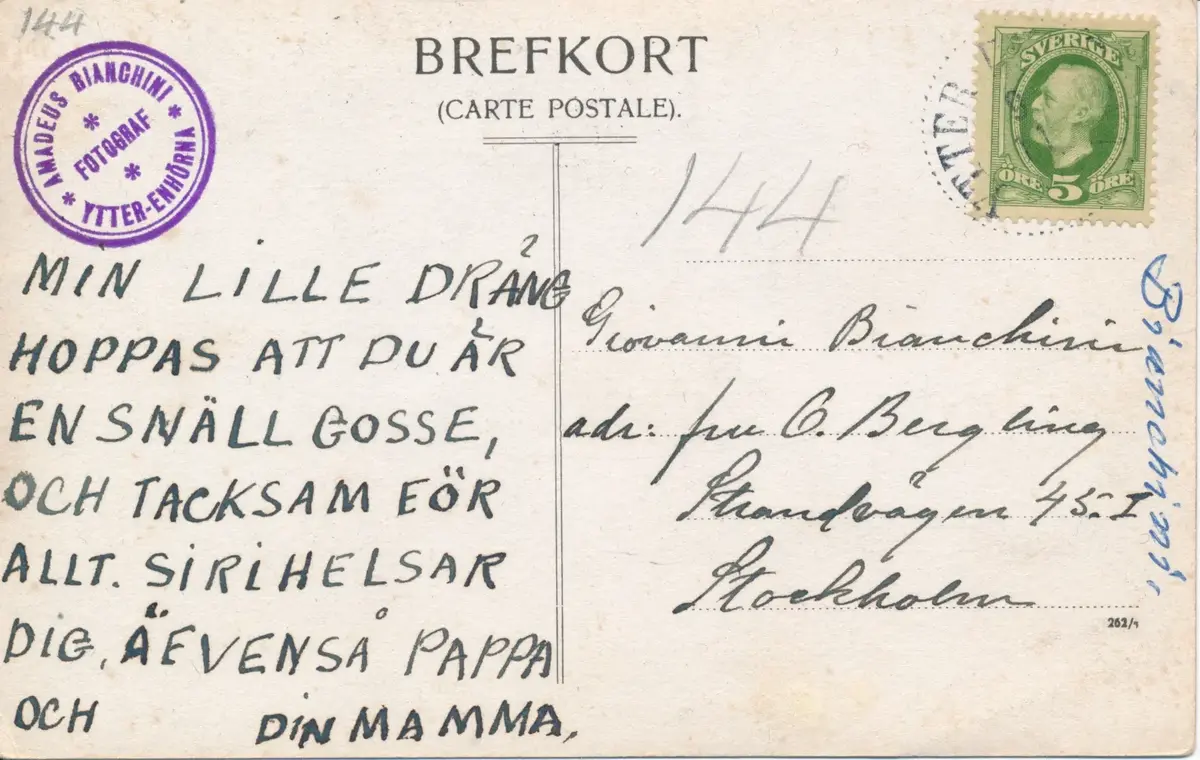 144
AMADEUS BIANCHINI
* FOTOGRAF *
* YTTER-ENHÖRNA *
BREFKORT
(CARTE POSTALE).
SVERIGE
ÖRE 5 ÖRE
YTTER
144
MIN LILLE DRÄNG
HOPPAS ATT DU ÄR
EN SNÄLL GOSSE,
OCH TACKSAM FÖR
ALLT. SIRI HELSAR
DIG, ÄFVENSÅ PAPPA
OCH DIN MAMMA.
Giovanni Bianchini
adr: fru O. Bergling
Strandvägen 45-I
Stockholm
262/1
Bianchini.